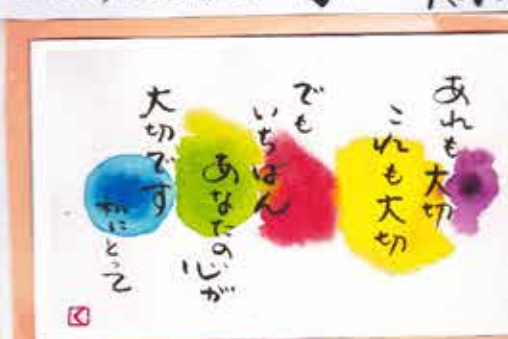 あれも大切
これも大切
でも
いちばん
あなたの
心が
大切です
私にとって